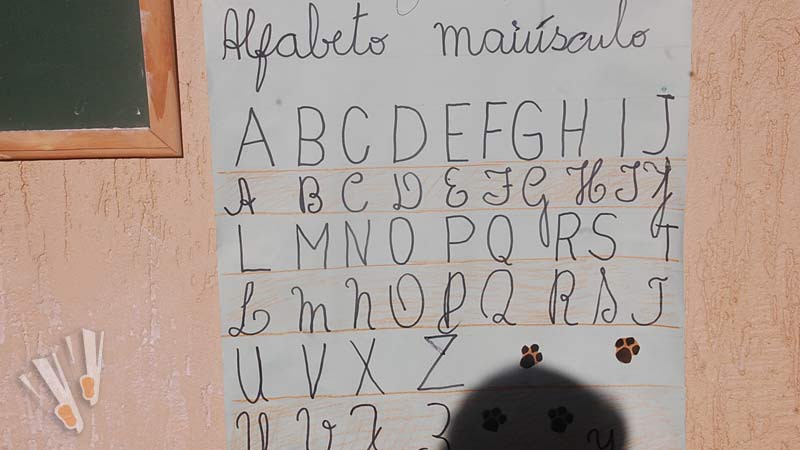 Alfabeto maiúsculo
A B C D E F G H I J
A B C D E F G H I J
L M N O P Q R S T
L M N O P Q R S T
U V X Z
U V X Z